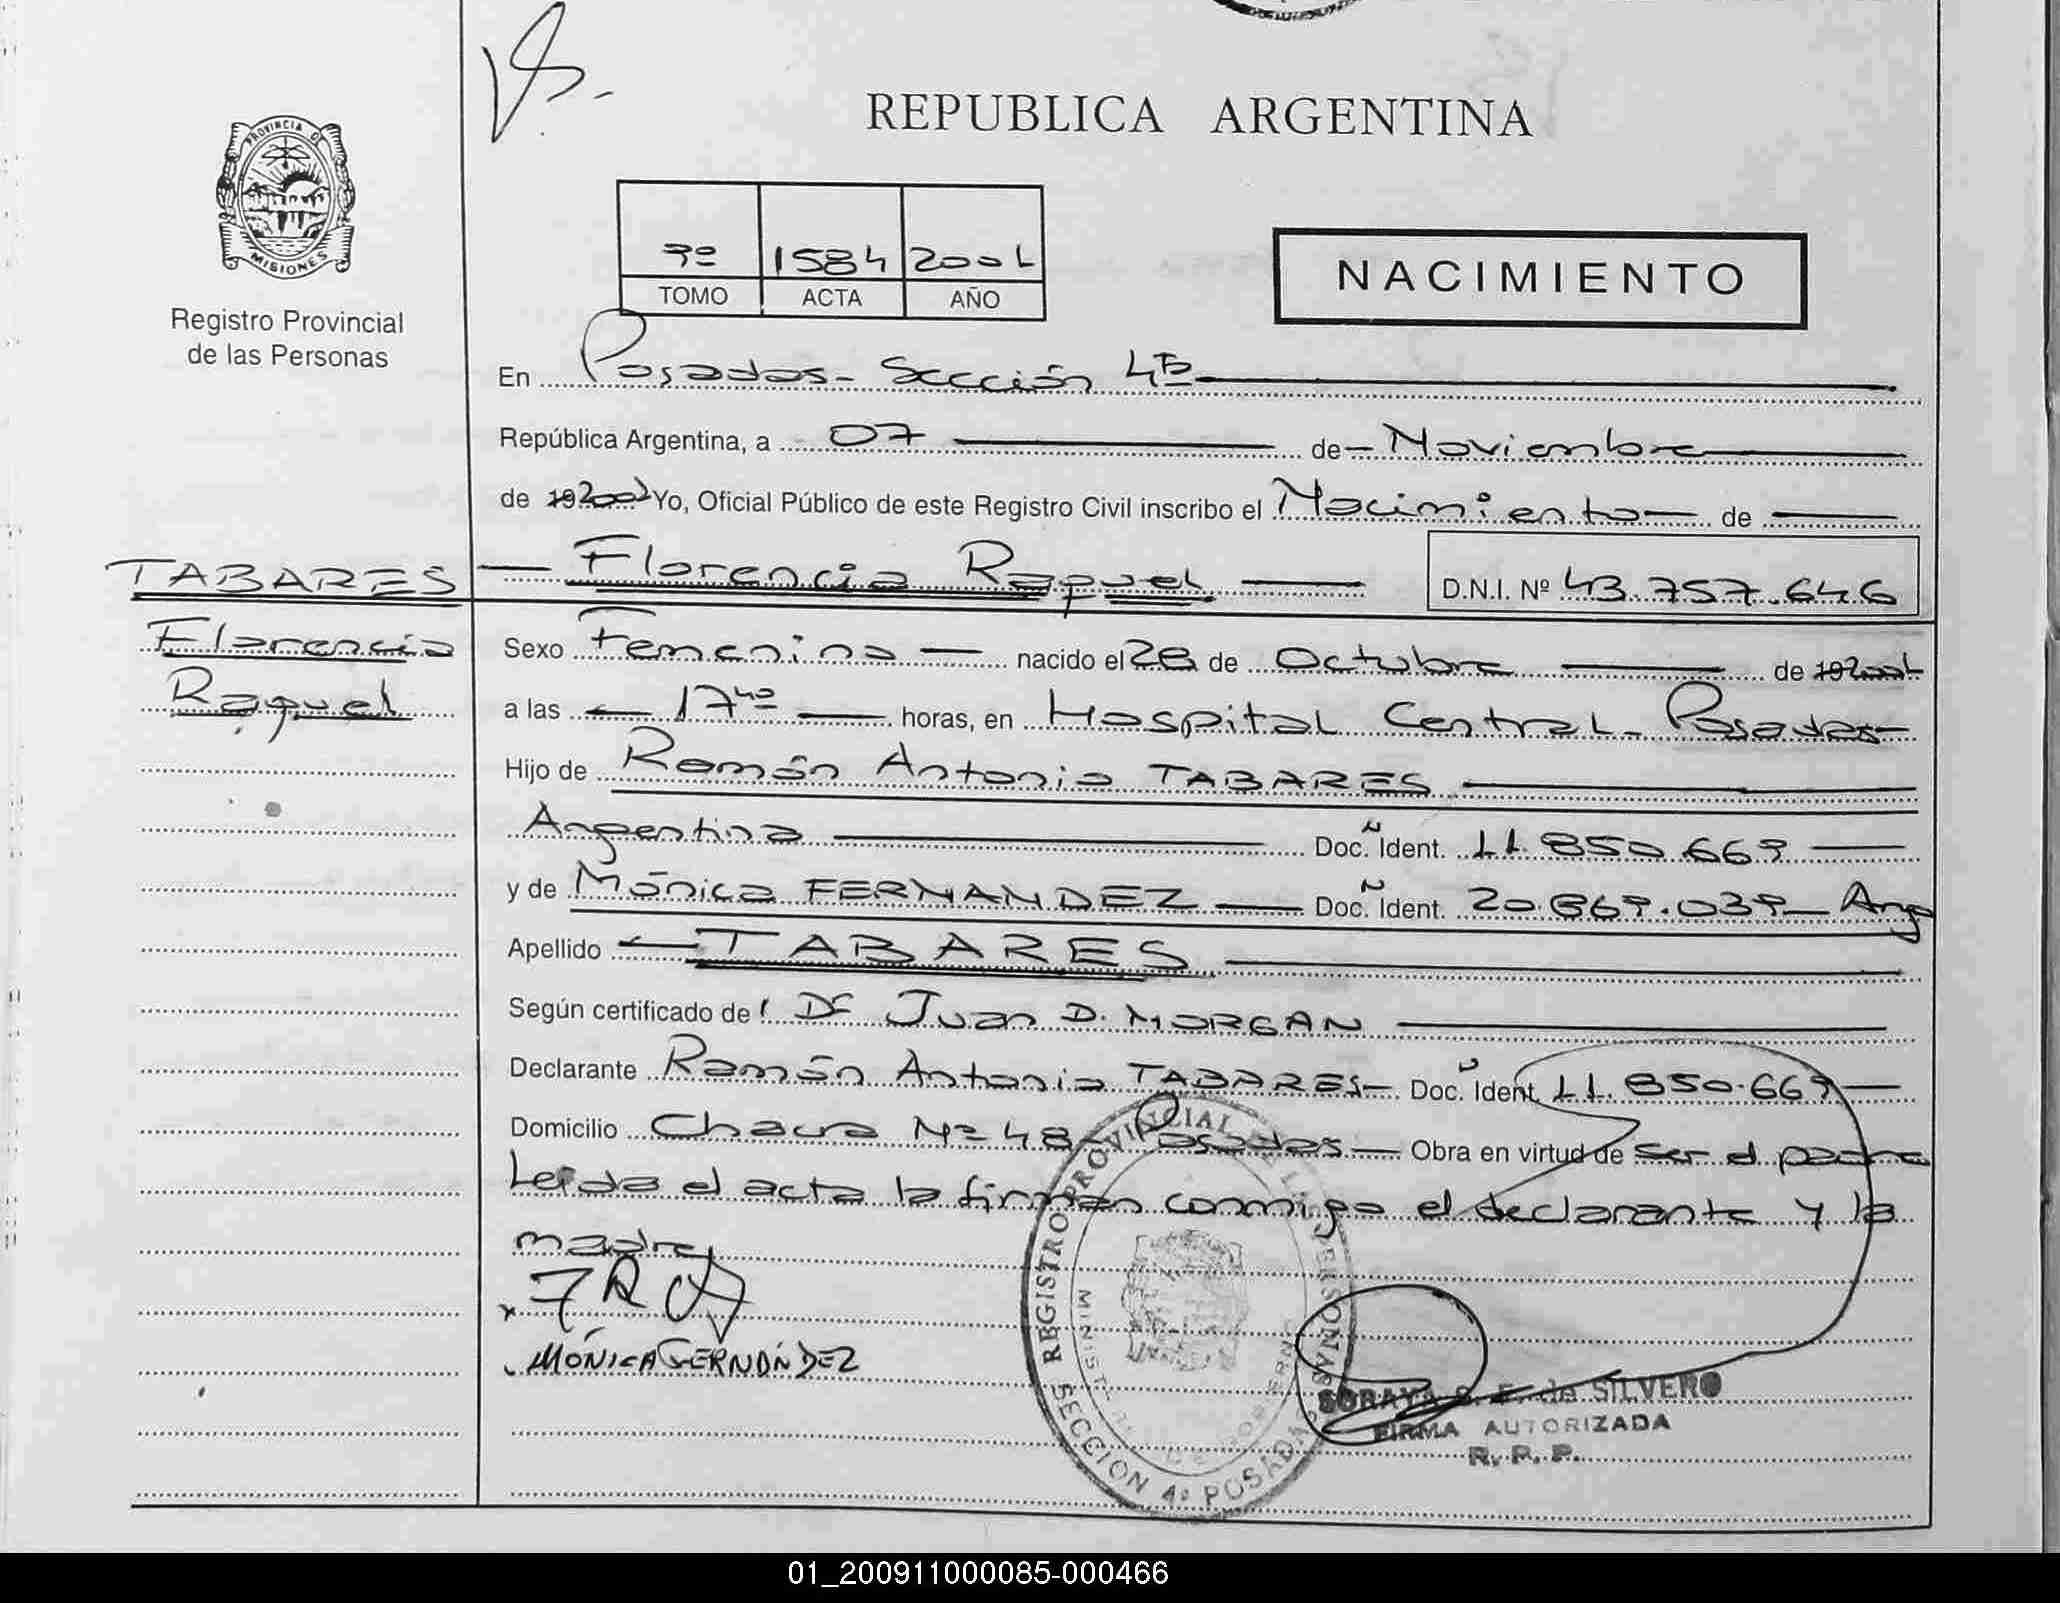 REPUBLICA ARGENTINA
PROVINCIA DE
MISIONES
Registro Provincial
de las Personas
1584
TOMO ACTA AÑO
NACIMIENTO
En Posadas- Sección 4ta
República Argentina, a 07 de Noviembre
de Yo, Oficial Público de este Registro Civil inscribo el Nacimiento de
TABARES
Florencia
Raquel
Florencia Raquel D.N.I. Nº 43.757.646
Sexo Femenino nacido el 28 de Octubre de
a las 17 40 horas, en Hospital Central- Posadas-
Hijo de Ramón Antonio TABARES
Argentina Doc. Ident. 11.850.669
y de Mónica FERNANDEZ Doc. Ident. 20.869.039 - Arg
Apellido TABARES
Según certificado de Dr Juan D. MORGAN
Declarante Ramón Antonio TABARES- Doc. Ident. 11.850.669
Domicilio Chacra Nº 48- Posadas - Obra en virtud de ser el padre
Leída el acta la firman conmigo el declarante y la
madre
MÓNICA FERNÁNDEZ
REGISTRO PROVINCIAL DE LAS PERSONAS
SECCION 4º POSADAS
SORAYA de SILVERO
FIRMA AUTORIZADA
R. P. P.
01_200911000085-000466